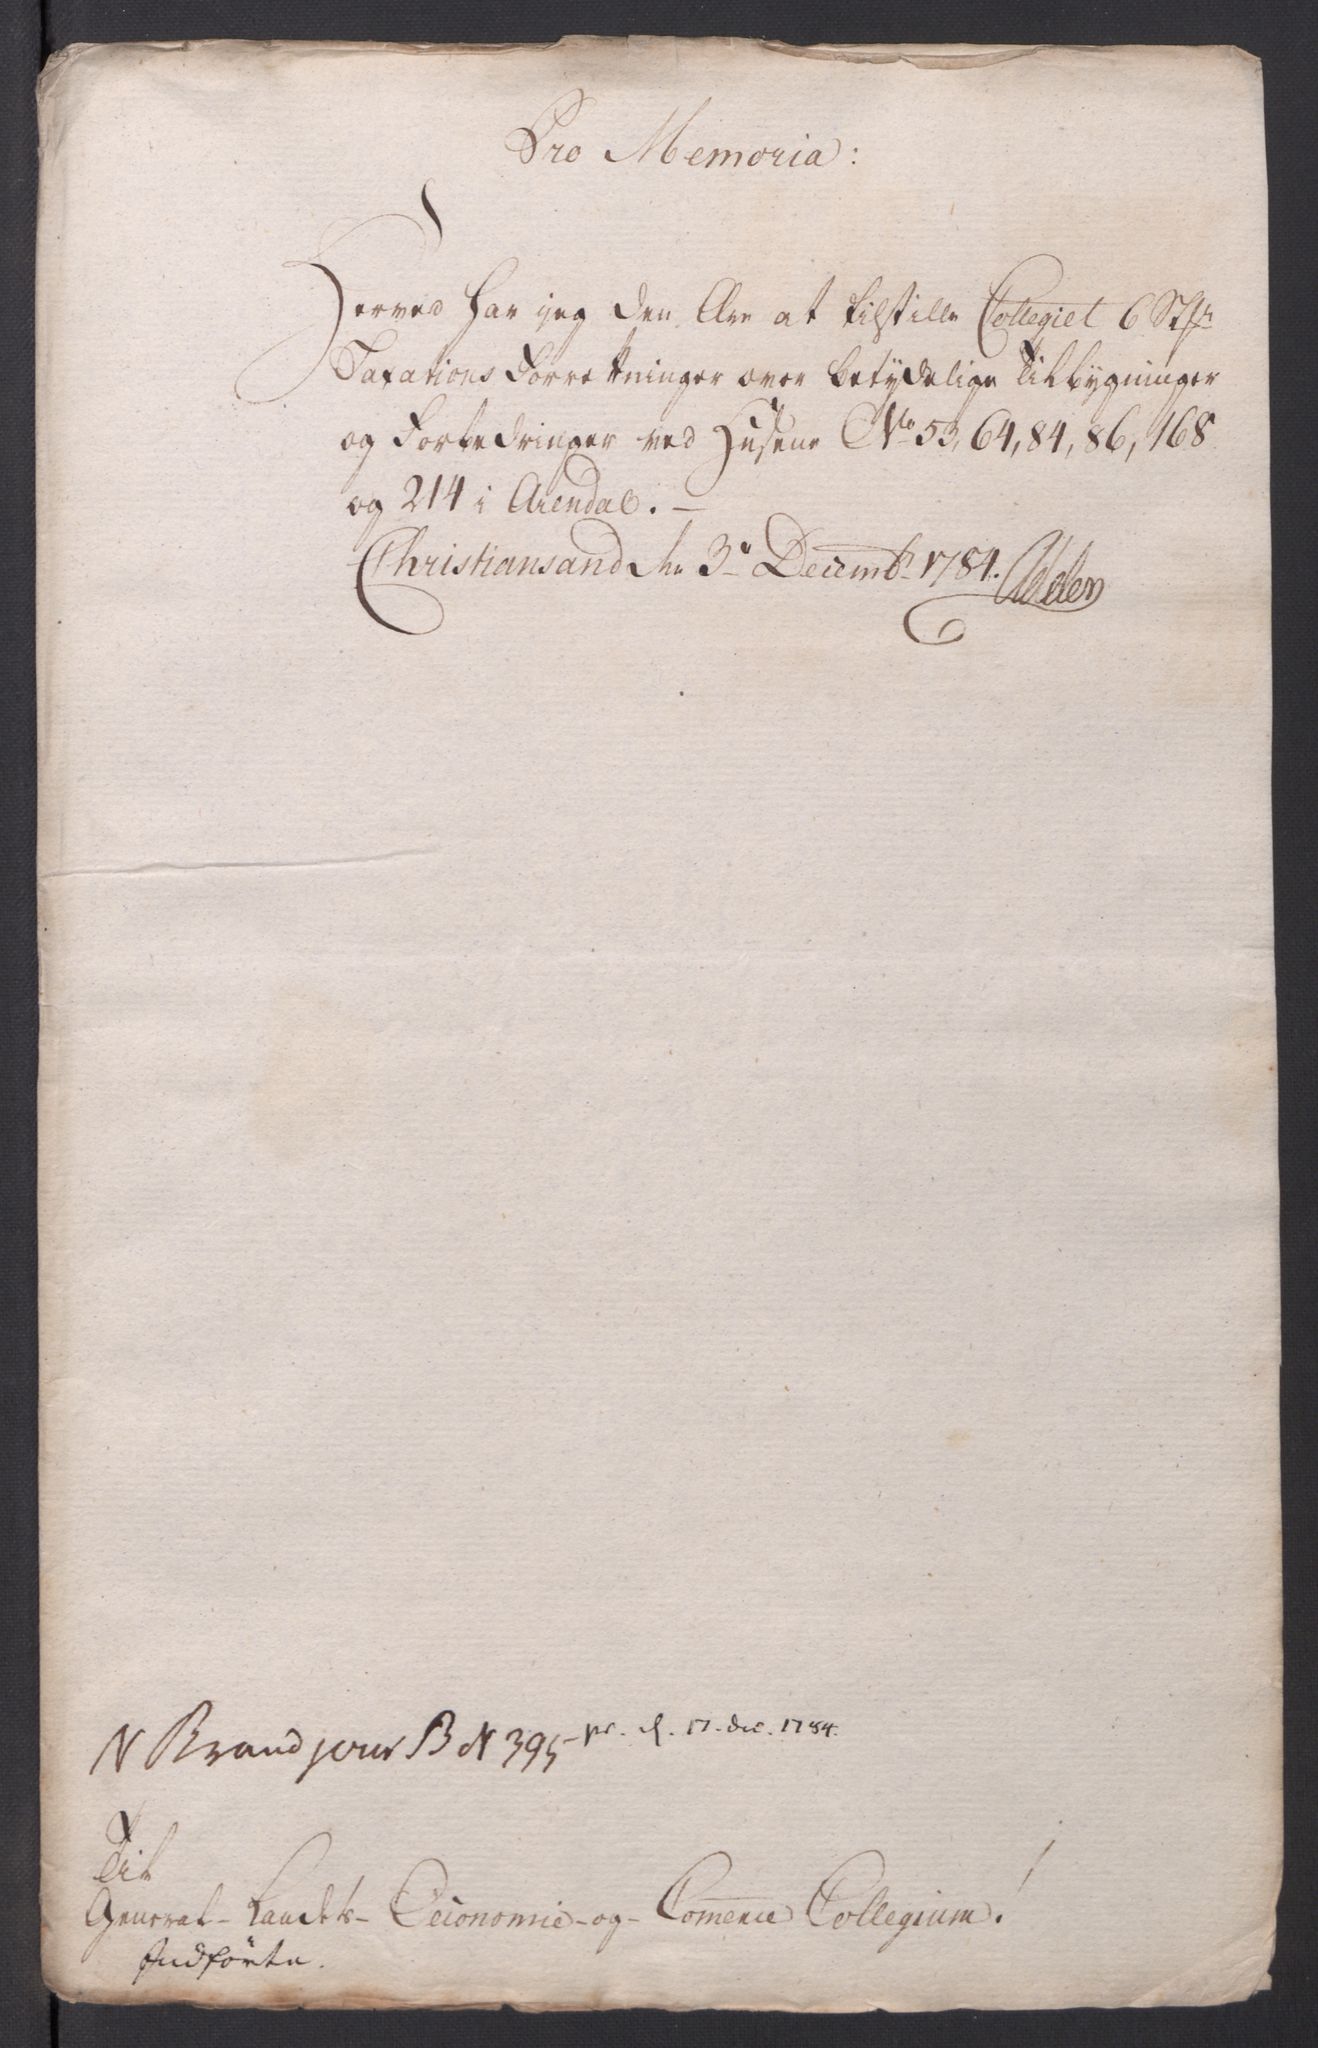 Pro Memoria:
Herved har jeg den Ære at tilstille Collegiet 6 Stk
Taxations Forretninger over betydelige Tilbygninger
og Forbedringer ved Husene No 53, 64, 84, 86, 168
og 214 i Arendal. —
Christiansand den 3 Decembr 1784. Adeler
N Brand jour B N 395 pr. d. 17. dec. 1784.
Til
General-Landets-Oeconomie-og-Commerce Collegium!
Indførte.